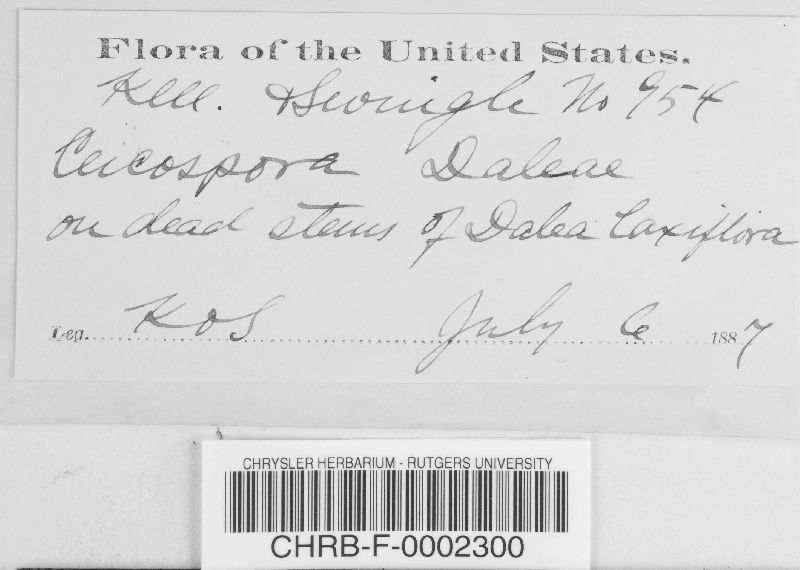 Flora of the United States.
Kell. & Swingle No 954
Cercospora Daleae
on dead stems of Dalea laxiflora
Leg. K & S July 6 1887
CHRYSLER HERBARIUM - RUTGERS UNIVERSITY
CHRB-F-0002300